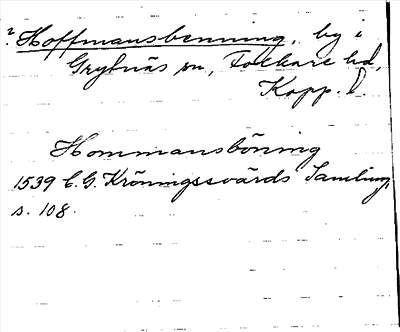 ? Hoffmansbenning, by i
Grytnäs sn, Folkare hd,
Kopp. l.
Hommansböning
1539 C.G. Kröningssvärds Samling,
s. 108.